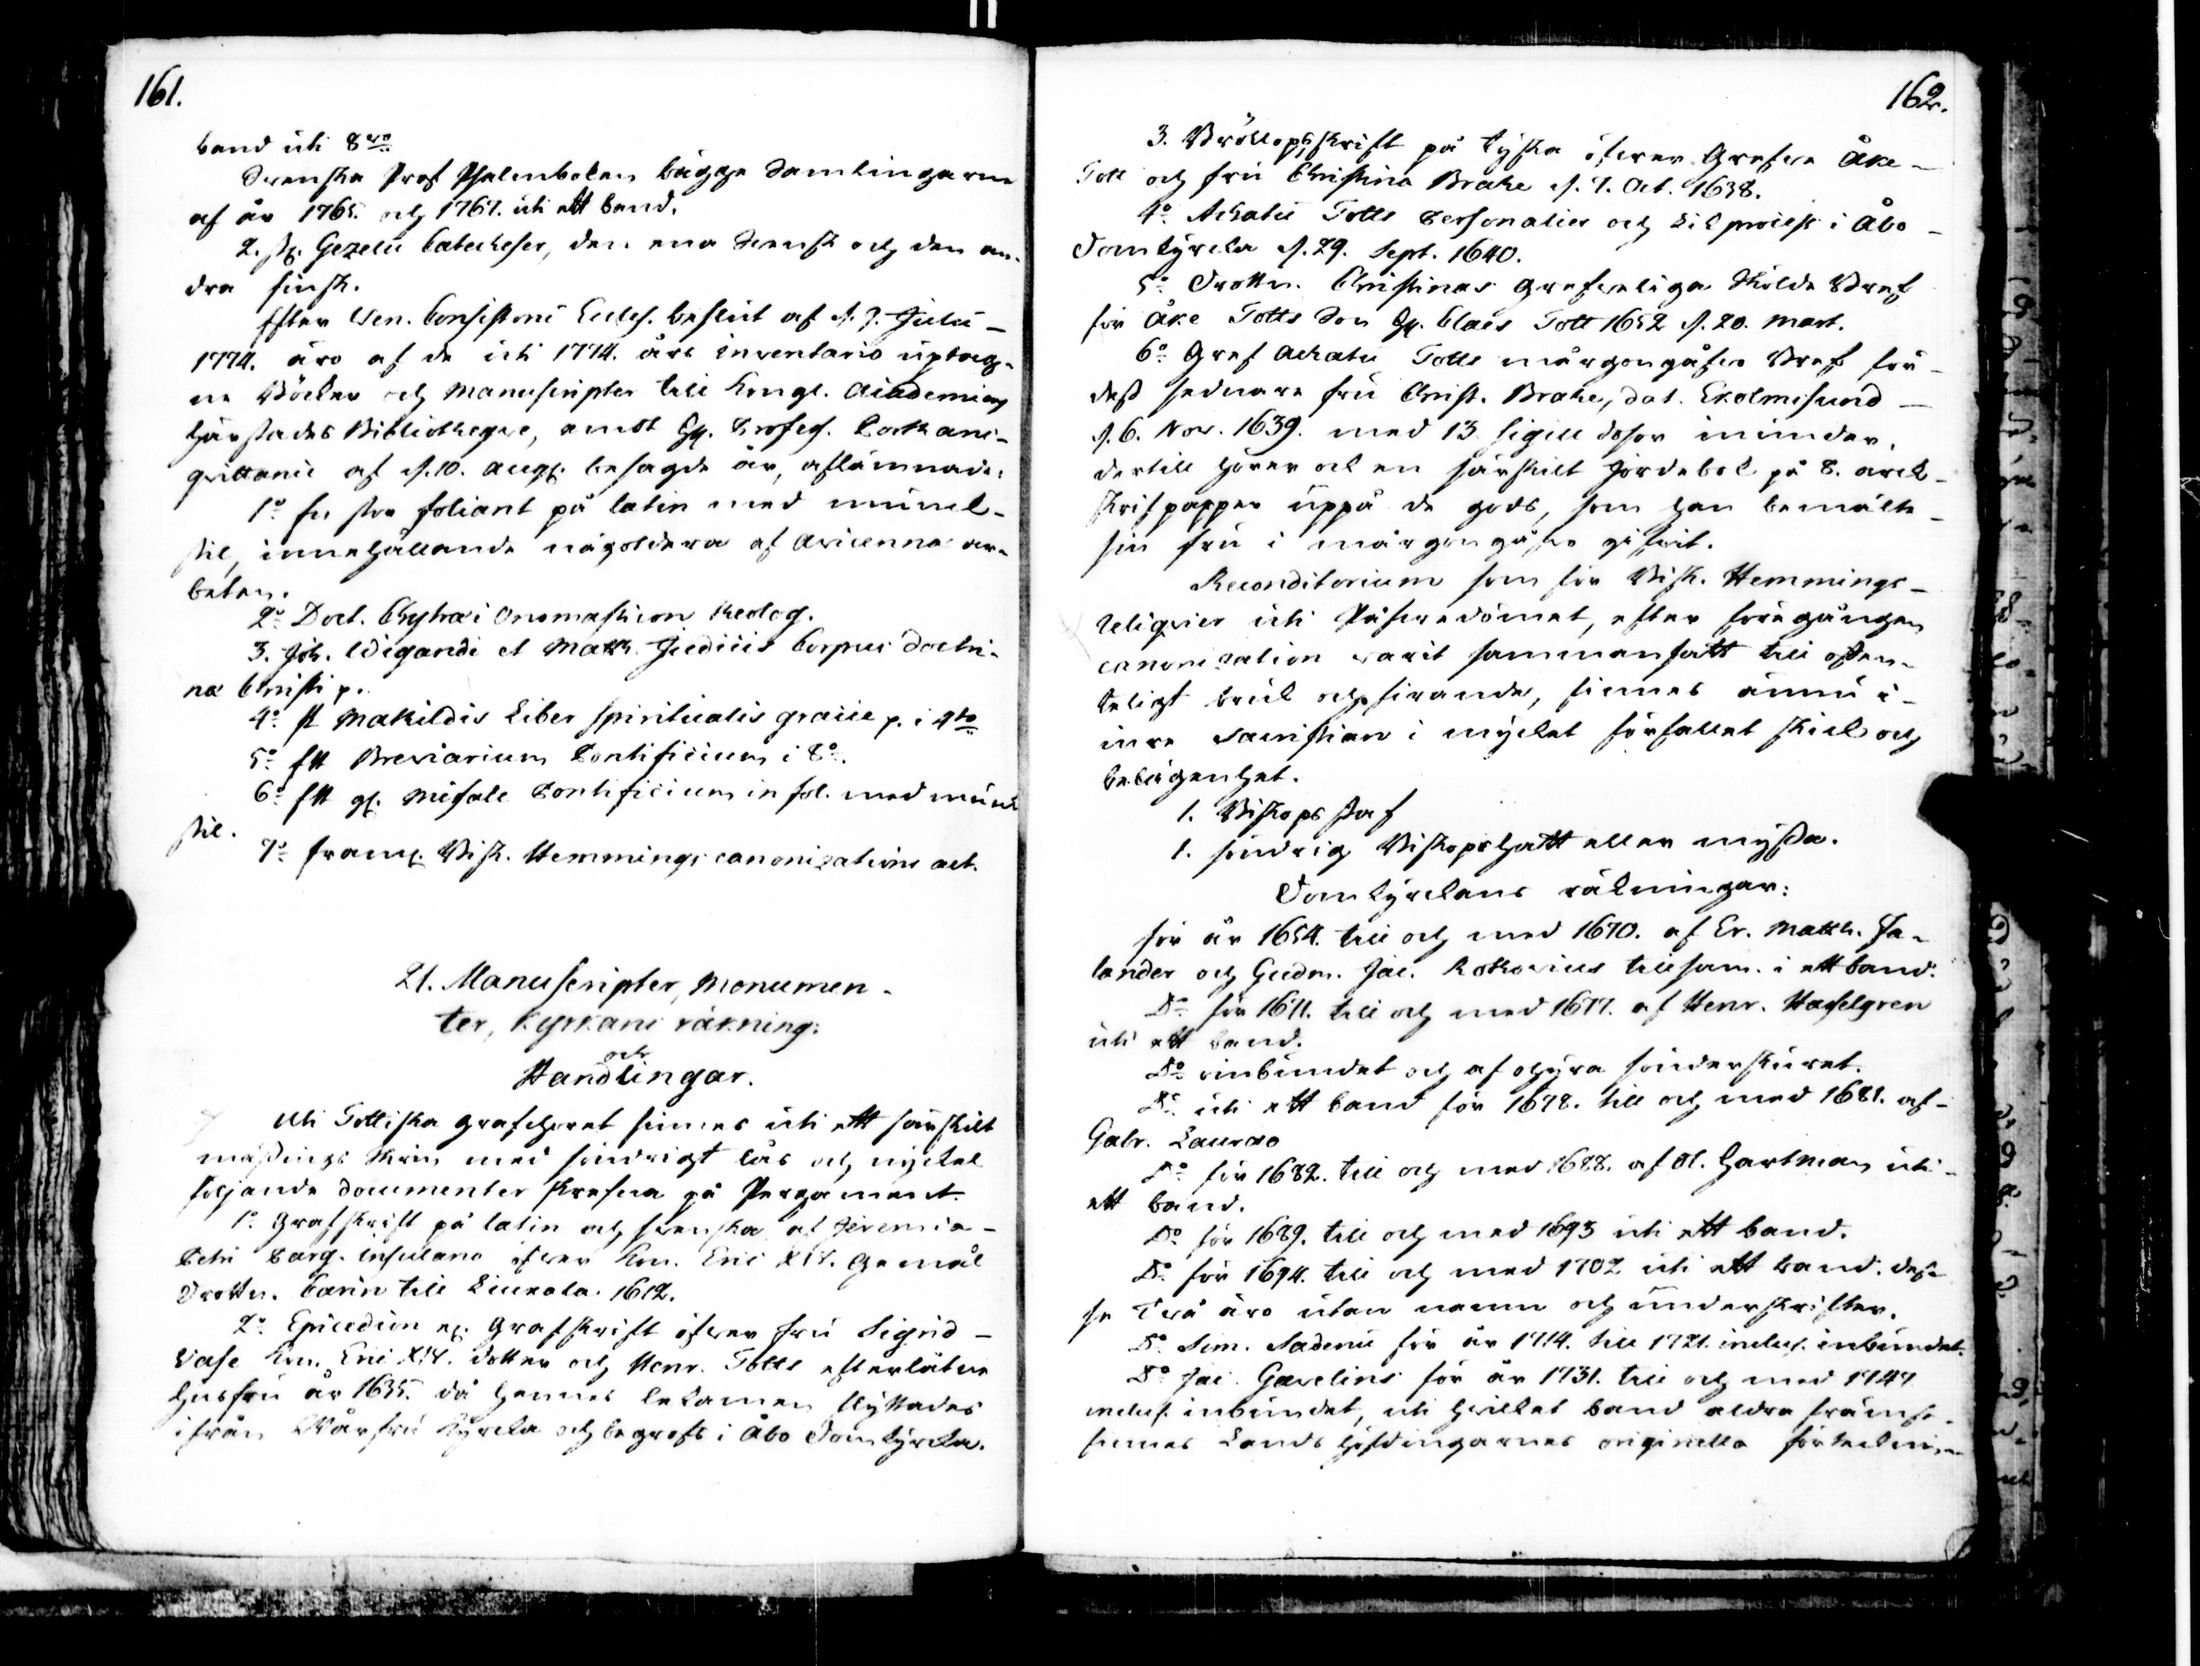 161.
band uti 8vo
Svenska Prof Psalmboken bägge Samlingarne
af år 1765. och 1767. uti ett band.
2. st. Gezelii Catecheser, den ena svensk och den an-
dra finsk.
Efter Ven. Consistorii Eccles. beslut af d. 7. Julii
1774. äro af de uti 1774. års inventario uptag-
ne Böcker och Manuscripter till Kongl. Academiens
härstädes Bibliotheque, emot Hr. Profess. Porthans
qvittance af d. 10. Aug. besagde år, aflämnade:
1o En stor foliant på latin med munck-
stil, innehållande någoldera af Avicennæ ar-
beten.
2o Doct. Chytræi Onomasticon theolog.
3. Joh. Wigandi et Matth. Judicis Corpus doctri-
næ Christi p.
4o St Mathildis Liber spiritualis graciæ p. i 4to
5o Ett Breviarium Pontificium i 8o.
6o Ett gl. Missale Pontificium in fol. med munck
stil.
7o fram. Bisk. Hemmings canonizations act.
21. Manuscripter, Monumen-
ter, Kyrkans räkning:
och
Handlingar.
Uti Tottiska grafchoret finnes uti ett särskilt
mässings skrin med sindrigt lås och nyckel
följande documenter skrefna på Pergament.
1o Grafskrift på latin och svenska af Jeremia
Petri Barg. insulano öfver Kon. Eric XIV. Gemål
Drottn. Carin till Liuxala 1612.
2o Epicedion el. Grafskrift öfver fru Sigrid
Vasa Kon. Eric XIV. dotter och Henr. Totts efterlåtne
husfru år 1635. då hennes lekamen flyttades
ifrån Vårfru kyrcka och begrofs i Åbo Domkyrcka.
162.
3. Bröllops skrift på tyska öfver Grefve Åke
Tott och fru Christina Brahe d. 7. Oct. 1638.
4o Achatii Totts personalier och likprocess i Åbo
Domkyrcka d. 29. Sept. 1640.
5o Drottn. Christinas grefveliga Sköldebref
för Åke Totts Son Hr. Claës Tott 1652 d. 20. Mart.
6o Gref Achatii Totts morgongåfvo Bref för
dess sednare fru Christ. Brahe, dat. Ekolmsund
d. 6. Nov. 1639. med 13 sigill dosor inunder,
dertill hörer ock en särskilt Jordebok på 8. arck
skrifpapper uppå de gods, som han bemälte
sin fru i morgongåfvo gifvit.
Reconditorium som för Bisk. Hemmings
reliquier uti Påfvedömet, efter föregången
canonization varit sammansatt till offen-
teligt bruk och firande, finnes ännu i
inre sacristian i mycket förfallet skick och
belägenhet.
1. Biskops staf
1. söndrig Biskopshatt eller myssa.
Domkyrckans räkningar:
för år 1654. till och med 1670. af Er. Matth. Fa-
lander och Gudm. Jac. Rothovius tillsam. i ett band.
Do för 1671. till och med 1677. af Henr. Hasselgren
uti ett band.
Do oinbundet och af ohyra sönderskuret.
Do uti ett band för 1678. till och med 1681. af
Gabr. Lauræo
Do för 1682. till och med 1688. af Ol. Hartman uti
ett band.
Do för 1689. till och med 1693 uti ett band.
Do för 1694. till och med 1702 uti ett band. des-
se två äro utan namn och underskrifter.
Do Sim. Sadenii för år 1714. till 1721. inclus. inbundet.
Do Jac. Gavelins för år 1731. till och med 1747
inclus. inbundet, uti hvilket band aldra främst
finnes Landshöfdingarnes originella förteckning